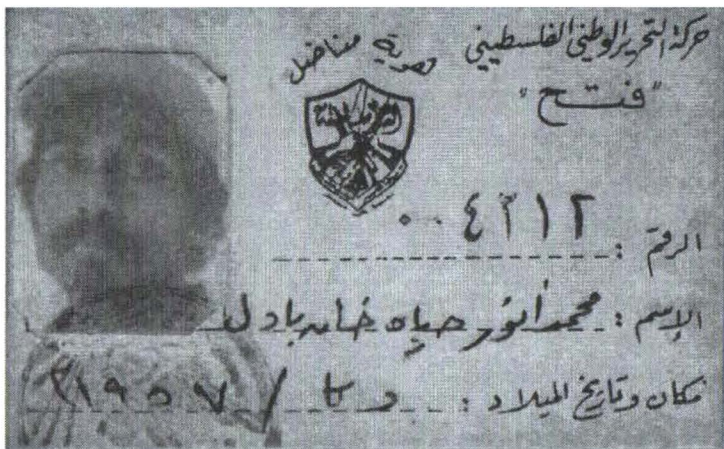 حركة التحرير الوطني الفلسطيني
"فتح"
هوية مناضل
العاصفة
الرقم : ٠٠٤٣١٢
الإسم : محمد أنور حياه خان بادل
مكان وتاريخ الميلاد : دكا / ١٩٥٧